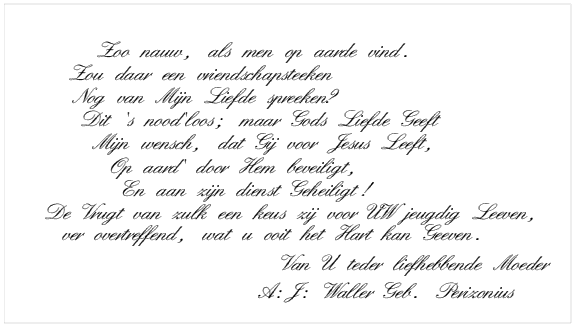 Zoo nauw, als men op aarde vind.
Zou daar een vriendschapsteeken
Nog van Mijn Liefde spreeken?
Dit 's nood'loos; maar Gods Liefde Geeft
Mijn wensch, dat Gij voor Jesus Leeft,
Op aard' door Hem beveiligt,
En aan zijn dienst Geheiligt!
De Vrugt van zulk een keus zij voor UW jeugdig Leeven,
ver overtreffend, wat u ooit het Hart kan Geeven.
Van U teder liefhebbende Moeder
A: J: Waller Geb. Perizonius